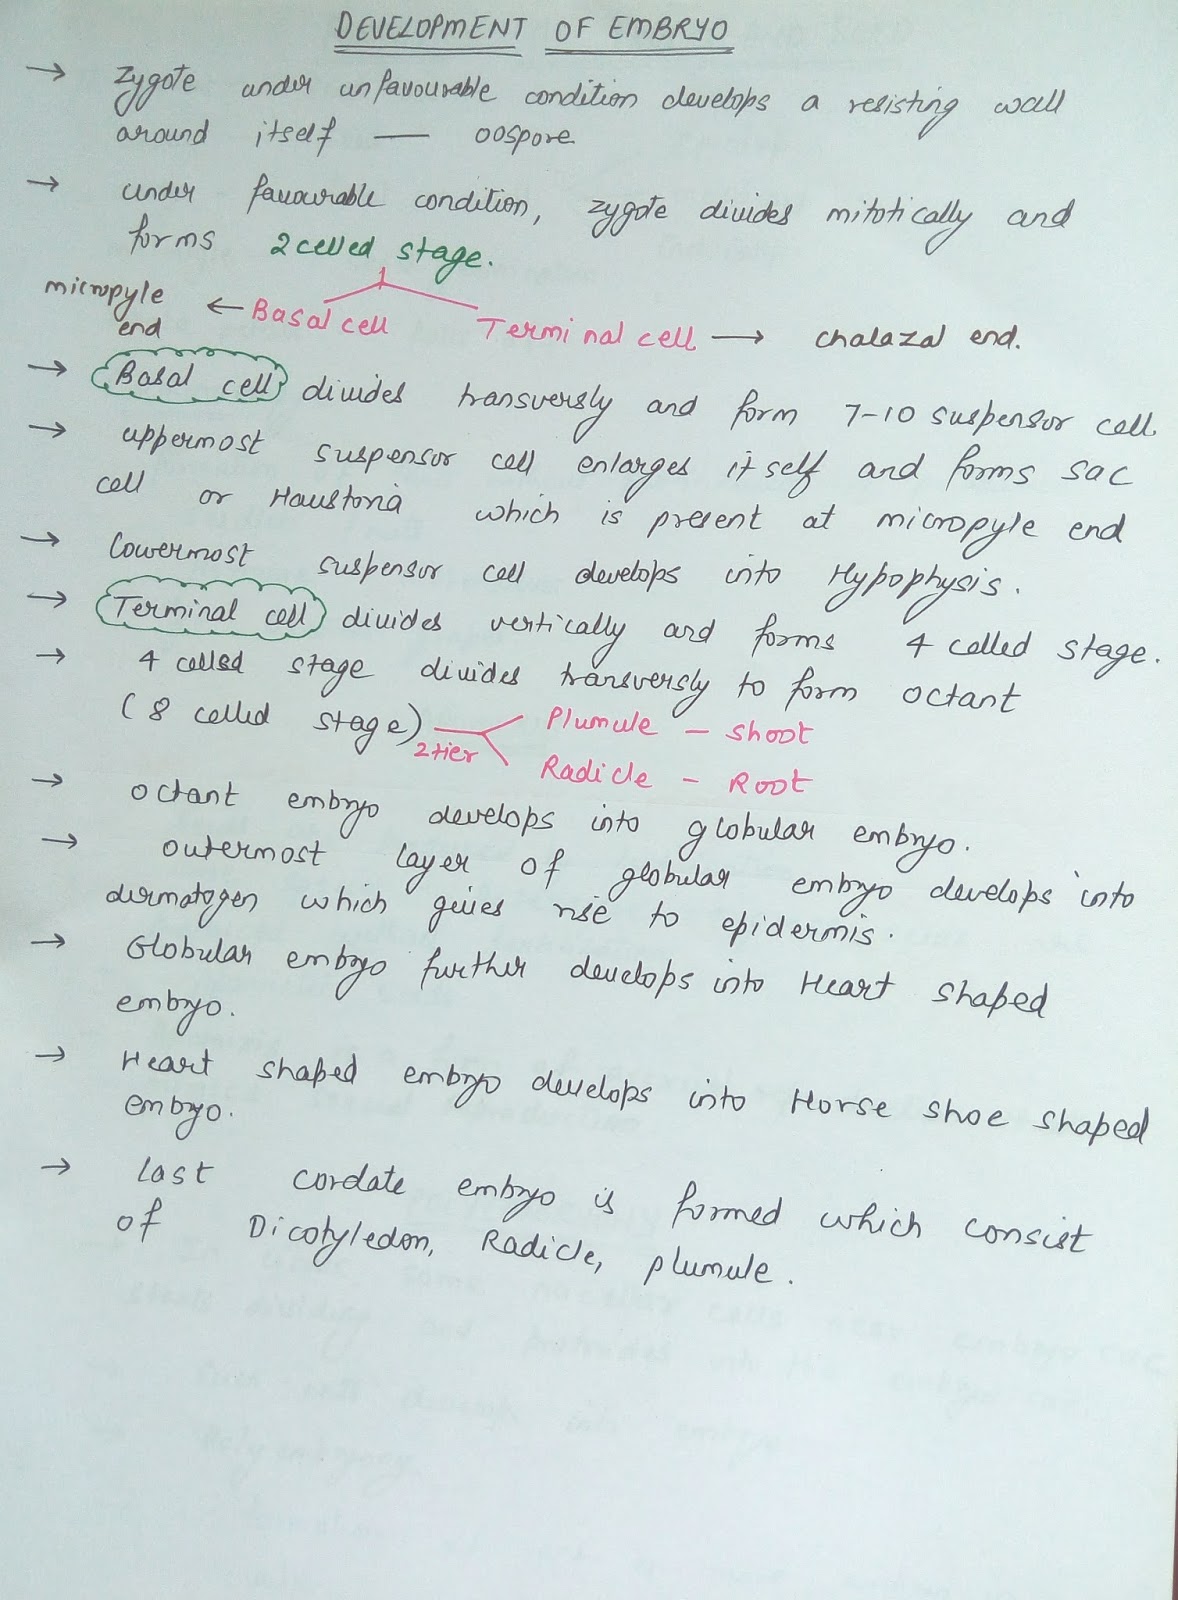 DEVELOPMENT OF EMBRYO
→ Zygote under unfavourable condition develops a resisting wall
around itself — oospore
→ under favourable condition, zygote divides mitotically and
forms 2 celled stage.
micropyle end ← Basal cell Terminal cell → chalazal end.
→ Basal cell divides transversly and form 7-10 suspensor cell.
→ uppermost suspensor cell enlarges itself and forms sac
cell or Haustoria which is present at micropyle end
→ Lowermost suspensor cell develops into Hypophysis.
→ Terminal cell divides vertically and forms 4 celled stage.
→ 4 celled stage divides transversly to form octant
(8 celled stage) 2 tier Plumule - shoot
Radicle - Root
→ octant embryo develops into globular embryo.
→ outermost layer of globular embryo develops into
dermatogen which gives rise to epidermis.
→ Globular embryo further develops into Heart shaped
embryo.
→ Heart shaped embryo develops into Horse shoe shaped
embryo.
→ Last cordate embryo is formed which consist
of Dicotyledon, Radicle, plumule.